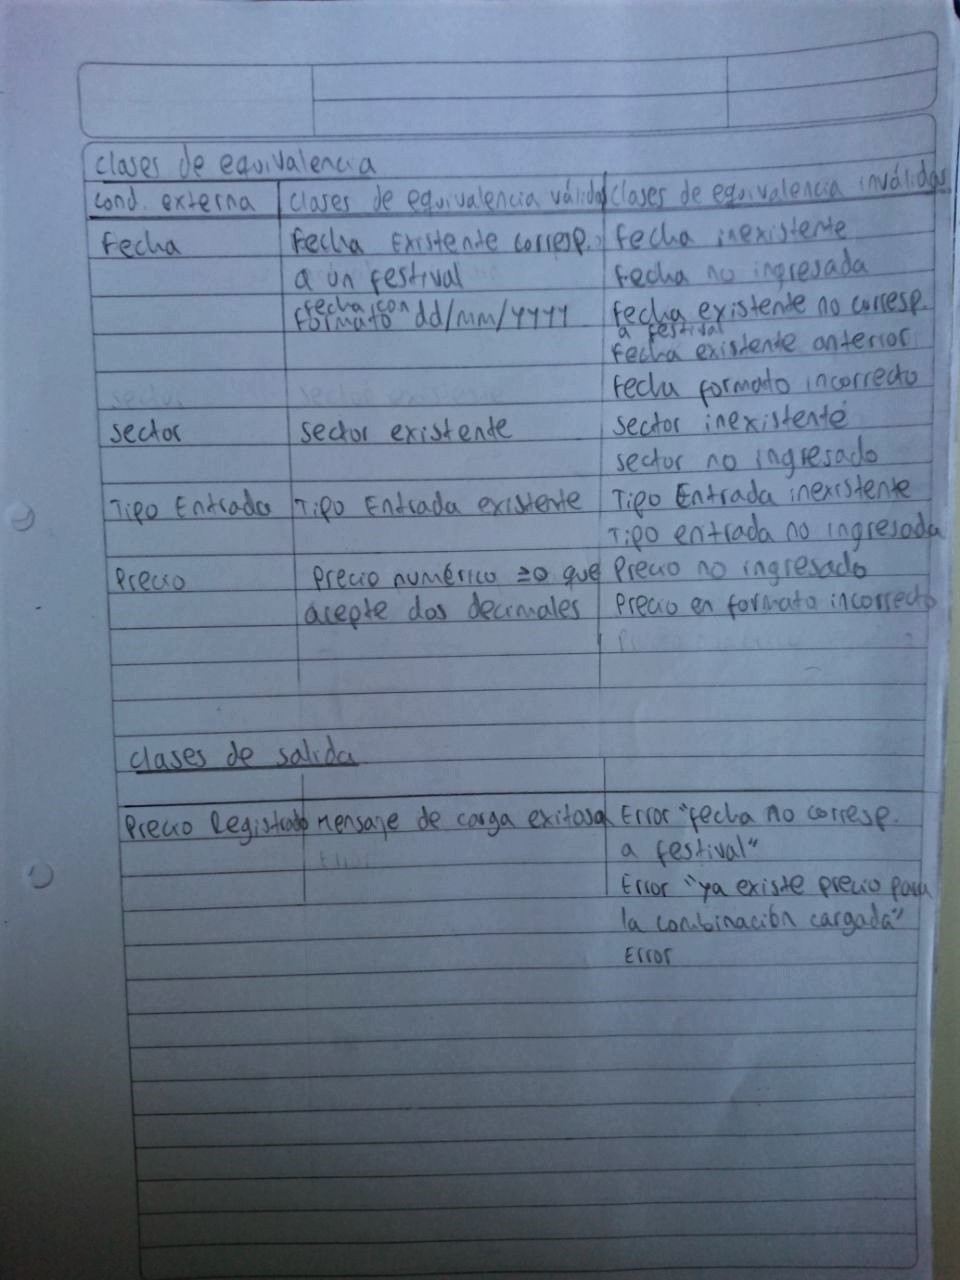 Clases de equivalencia
Cond. externa Clases de equivalencia válidas Clases de equivalencia inválidas
Fecha Fecha Existente corresp. Fecha inexistente
a un festival Fecha no ingresada
fecha con fecha existente no corresp.
formato dd/mm/yyyy a festival
fecha existente anterior
Fecha formato incorrecto
sector sector existente
Sector Sector existente sector inexistente
sector no ingresado
Tipo Entrada Tipo Entrada existente Tipo Entrada inexistente
Tipo entrada no ingresada
Precio Precio numérico ≥0 que Precio no ingresado
acepte dos decimales Precio en formato incorrecto
Clases de salida
Precio Registrado Mensaje de carga exitosa Error "fecha no corresp.
Error a festival"
Error "ya existe precio para
la combinación cargada"
Error